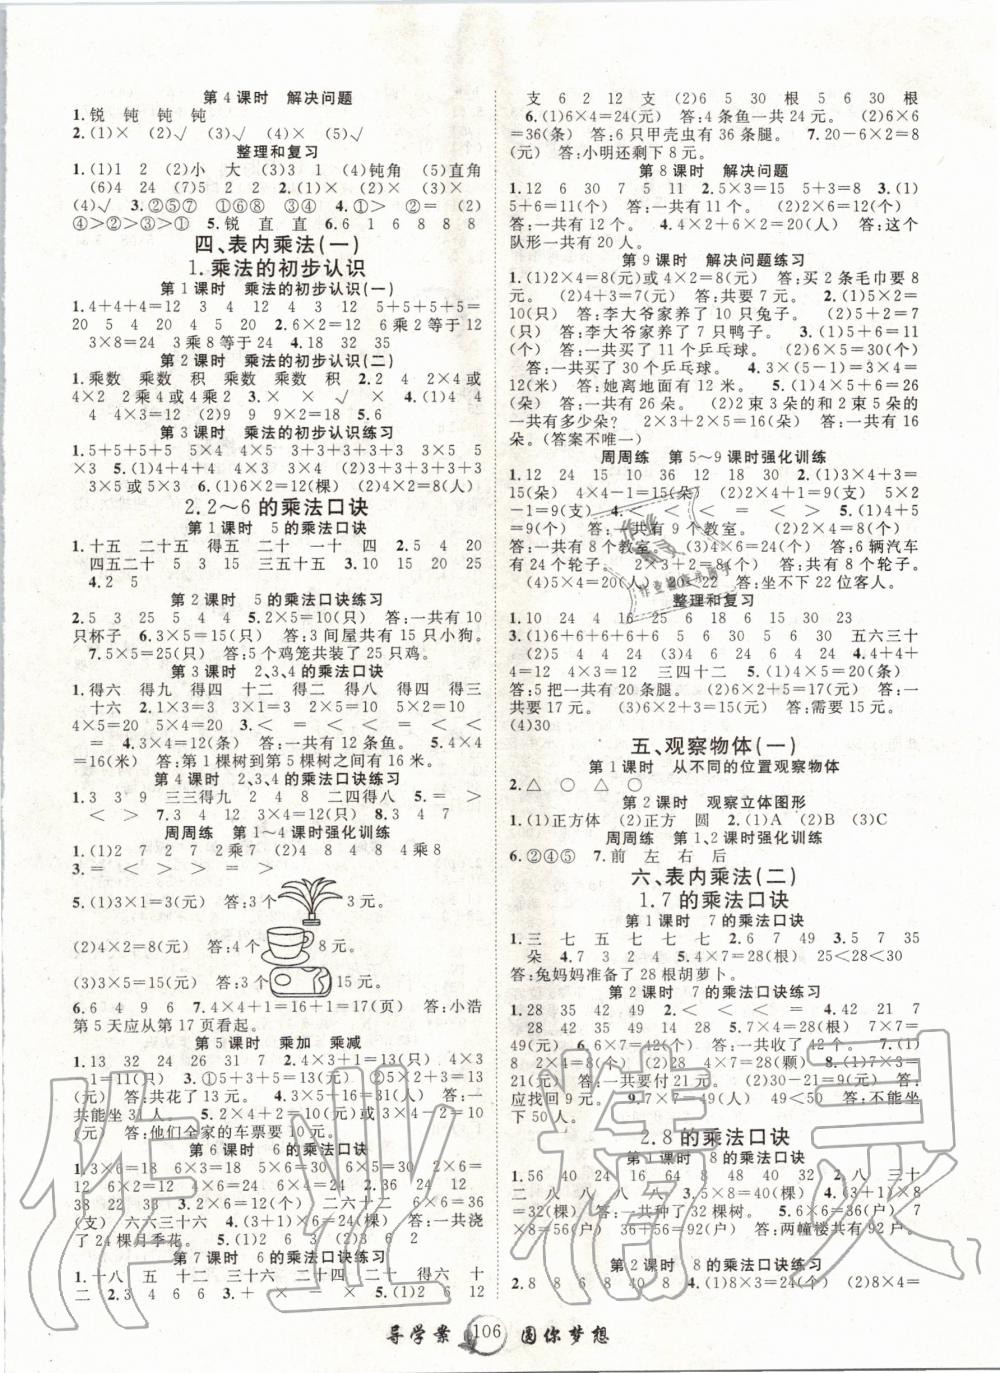 第4课时　解决问题
1.锐　钝　钝　钝
2.(1)×　(2)√　(3)√　(4)×　(5)√
整理和复习
1.(1)1　2　(2)小　大　(3)3　1　(4)钝角　(5)直角
(6)4　24　(7)5　2　2　2.(1)×　(2)×　(3)×
(4)√　3.②⑤⑦　①⑥　③④　4.①>　②=　(2)
④>②>①>③　5.锐　直　直　6.1　6　8　8　8
四、表内乘法(一)
1.乘法的初步认识
第1课时　乘法的初步认识(一)
1.4+4+4=12　3　4　12　4　3　12　5+5+5+5=
20　5　4　20　4　5　20　2.6×2=12　6乘2等于12
3×8=24　3乘8等于24　4.18　32　35
第2课时　乘法的初步认识(二)
1.乘数　乘数　积　乘数　乘数　积　2.2　4　2×4或
4×2　2乘4或4乘2　3.×　×　√　×　4.(1)4　4
4　4×3=12　(2)9　9　2×9=18　5.6
第3课时　乘法的初步认识练习
1.5+5+5+5　5×4　4×5　3+3+3+3+3　3×5　5
×3　5.(1)4+4+4=12　4×3=12　(2)5+5+5=15
3×5=15或5×3=15　6.(1)6×2=12(棵)　(2)4+6=10(人)
2.2～6的乘法口诀
第1课时　5的乘法口诀
1.十五　二十五　得五　二十　一十　四　2.5　4　20
四五二十　5　3　15　三五十五　3.10　15　20　25
4.2　5
第2课时　5的乘法口诀练习
2.5　3　25　5　4　4　5.2×5=10(只)　答:一共有10
只杯子　6.3×5=15(只)　答:3间屋共有15只小狗。
7.5×5=25(只)　答:5个鸡笼共装了25只鸡。
第3课时　2、3、4的乘法口诀
1.得六　得九　得四　十二　得二　十二　得八　得三
十六　2.1×3=3　2×3=6　3×5=15　2×1=2
4×5=20　5×2=10　3.<　<　=　<　<　<
=　>　4.3×4=12(条)　答:一共有12条鱼。　5.4×4
=16(米)　答:第1棵树到第5棵树之间有16米。
第4课时　2、3、4的乘法口诀练习
1.3　3　9　三三得九　4　2　8　二四得八　2.>　=
<　>　7.3×4=12(个)　答:一共有12个。　8.3　4　7
周周练　第1～4课时强化训练
1.(1)2　7　2　7　2　2乘7　(2)4　8　4　8　4乘8
3.=　<　>　>　<　=
5.(1)3×1=3(元)　答:3个　3元。
(2)4×2=8(元)　答:2个　8元。
(3)3×5=15(元)　答:3个　15元。
6.6　4　9　6　7.4×4+1=16+1=17(页)　答:小浩
第5天应从第17页看起。
第5课时　乘加　乘减
1.13　32　24　26　31　7　2.4×3+1=13(只)　4×3
-1=11(只)　3.①5×4-1=19(元)　②5×4+1=21
(元)　答:共花了19元。　4.3×5+16=31(人)　答:一
共能坐31人。　5.4×2+2=10(元)或3×2+2×2=10
(元)　答:他们全家的车票要10元。
第6课时　6的乘法口诀
1.3×6=18　6×3=18　5×6=30　6×5=30　2×6=12
6×2=12　4×6=24　6×4=24　2.36　24　12
38　22　33　3.6×2=12(个)　二六十二　6×6=36
(支)　六六三十六　4.6×4=24(棵)　答:一共浇
了24棵月季花。　5.(1)2　6　3　(2)3　6　2
第7课时　6的乘法口诀练习
1.十八　五　十二　三十　二十四　二十　得六　十
二　2.3　4　6　6　3.+　×　×　×　5.(1)2　6　12
支　6　2　12　支　(2)6　5　30　根　5　6　30　根
6.(1)6×4=24(元)　答:4条鱼一共24元。　(2)6×6
=36(条)　答:6只甲壳虫有36条腿。　7.20-6×2=8
(元)　答:小明还剩下8元。
第8课时　解决问题
1.12　6　30　7　5　11　2.5×3=15　5+3=8　3.(1)
5+6=11(个)　答:一共有11个。　(2)2×6=12(个)
答:一共有12个。　4.4×5=20(人)　答:这个
队形一共有20人。
第9课时　解决问题练习
1.(1)2×4=8(元)或4×2=8(元)　答:买2条毛巾要8
元。　(2)4+3=7(元)　答:共要7元。　2.(1)5×2=
10(只)　答:李大爷家养了10只兔子。　(2)5+2=7
(只)　答:李大爷家养了7只鸭子。　3.(1)5+6=11
(个)　答:一共买了11个乒乓球。　(2)5×6=30(个)
答:一共买了30个乒乓球。　4.3×(5-1)=3×4=
12(米)　答:她离地面有12米。　5.(1)4×5+6=26
(朵)　答:一共有26朵。　(2)2束3朵的和2束5朵的
一共有多少朵?　2×3+2×5=16(朵)　答:一共有16
朵。(答案不唯一)
周周练　第5～9课时强化训练
1.12　24　15　10　36　12　18　30　2.(1)3×4+3=
15(朵)　4×4-1=15(朵)　(2)3×4-3=9(支)　5×2
-1=9(支)　4.<　<　<　<　<　<　5.(1)4+5
=9(个)　答:一共有9个教室。　(2)2×4=8(个)
答:一共有8个教室。　(3)4×6=24(个)　答:6辆汽车
有24个轮子。　(4)2×4=8(个)　答:一共有8个轮子。
(5)4×5=20(位)　20<22　答:坐不下22位客人。
整理和复习
1.10　24　4　16　25　6　18　6　15　30　23
3.(1)6+6+6+6+6　6×5=30　5×6=30　五六三十
=12　(2)4　24　20　18　12　30　6　15　4.4+4+
4=12　4×3=12　三四十二　5.(1)4×5=20(条)
答:5把一共有20条腿。　(2)2×6+5=17(元)　答:一
共要17元。　(3)6×2+3=15(元)　答:需要15元。
(4)30
五、观察物体(一)
第1课时　从不同的位置观察物体
2.△　○　△　△　○　○
第2课时　观察立体图形
1.(1)正方体　(2)正方　圆　2.(1)A　(2)B　(3)C
周周练　第1、2课时强化训练
6.②④⑤　7.前　左　右　后
六、表内乘法(二)
1.7的乘法口诀
第1课时　7的乘法口诀
1.三　七　五　七　七　七　2.6　7　49　3.5　7　35
朵　4.7　5.4×7=28(根)　25<28<30
答:兔妈妈准备了28根胡萝卜。
第2课时　7的乘法口诀练习
1.28　35　42　49　2.<　<　=　<　5.7×7=
49(元)　6.6×7=42(元)　答:一共收了42元。　7.(1)
8　2×4=8　(2)4×7=28(颗)　8.(1)7×3=
21(元)　答:一共要付21元。　(2)30-21=9(元)　答:
应找回9元。　9.7×7=49(人)　49<50　答:不能坐
下50人。
2.8的乘法口诀
第1课时　8的乘法口诀
1.56　40　24　16　64　8　48　40　32　2.八　三十
二　八　八　八　八　3.5×8=40(棵)　4.(3+1)×8
=32(棵)　答:一共种了32棵树。　5.6×6=36(户)
7×8=56(户)　36+56=92(户)　答:两幢楼共有92户。
第2课时　8的乘法口诀练习
2.8　8　6　8　40　8　5.(1)8×3=24(个)　(2)8×4=
导学案　106　圆你梦想